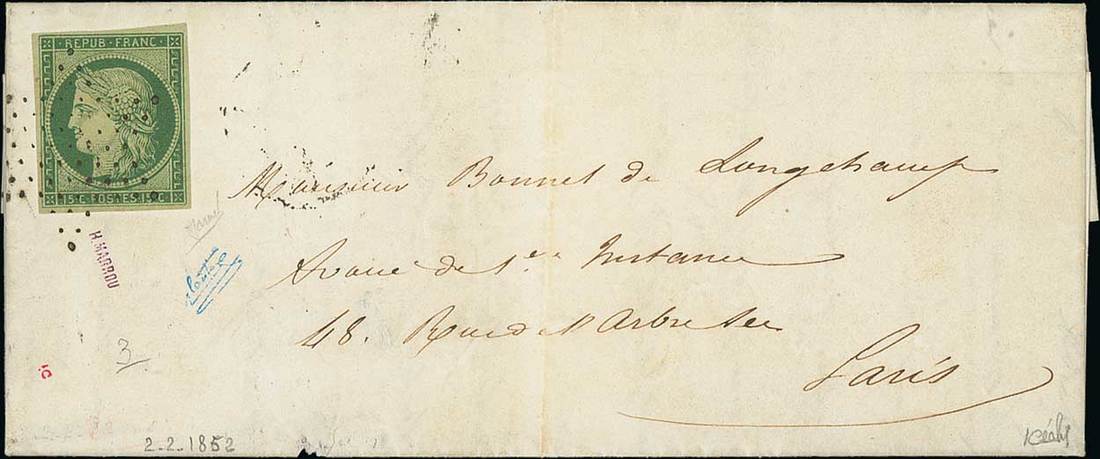 REPUB·FRANC·
15.C. POSTES.15.C
Monsieur Bonnet de Longchamp
Avoué de 1ère Instance
48. Rue de l'Arbre Sec
Paris
H. MARROU
3
2-2-1852